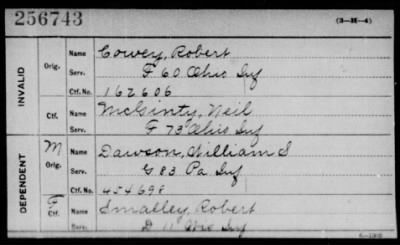 256743
(3—H—4)
INVALID
Orig.
Name Cowey, Robert
Serv. F 60 Ohio Inf
Ctf. No. 162606
Ctf.
Name McGinty, Neil
Serv. F 73 Ohio Inf
DEPENDENT
M
Orig.
Name Dawson, William S
Serv. G 83 Pa Inf
Ctf. No. 454698
F
Ctf.
Name Smalley, Robert
Serv. D 11 Inf